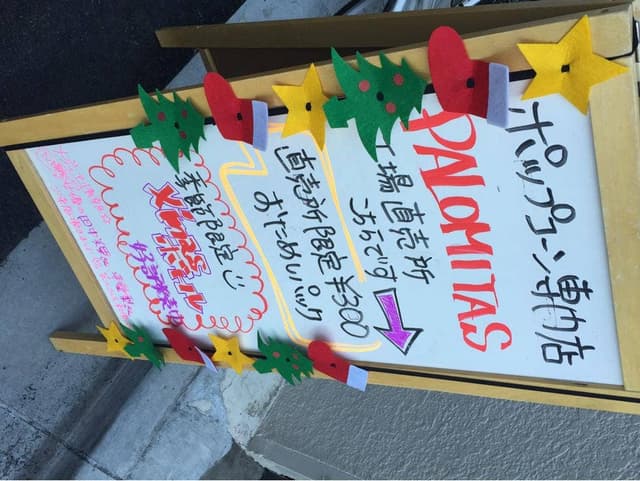 ポップコーン専門店
PALOMITAS
工場直売所
こちらです
直売所限定¥300
おためしパック
季節限定
X'MAS
ボトル
好評発売中